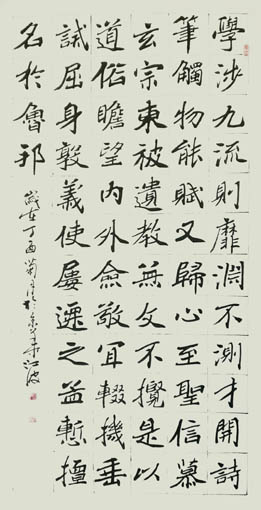 學涉九流則靡淵不測才開詩
筆觸物能賦又歸心至聖信慕
玄宗東被遺教無文不攬是以
道俗瞻望內外僉敬宜輟機垂
誡屈身敦義使屢遝之益慙擅
名於魯邦
歲在丁酉菊月
江波